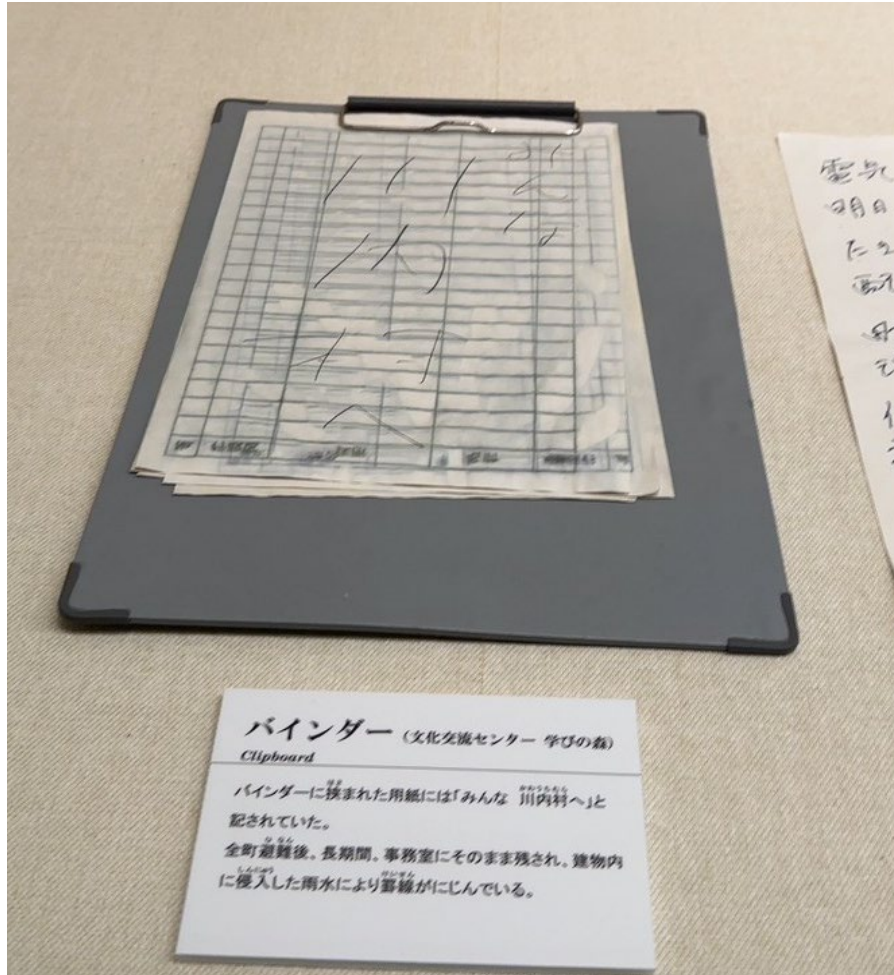 みんな
川内村へ
電気
明日
バインダー（文化交流センター 学びの森）
Clipboard
バインダーに挟まれた用紙には「みんな 川内村へ」と
記されていた。
全町避難後、長期間、事務室にそのまま残され、建物内
に侵入した雨水により罫線がにじんでいる。